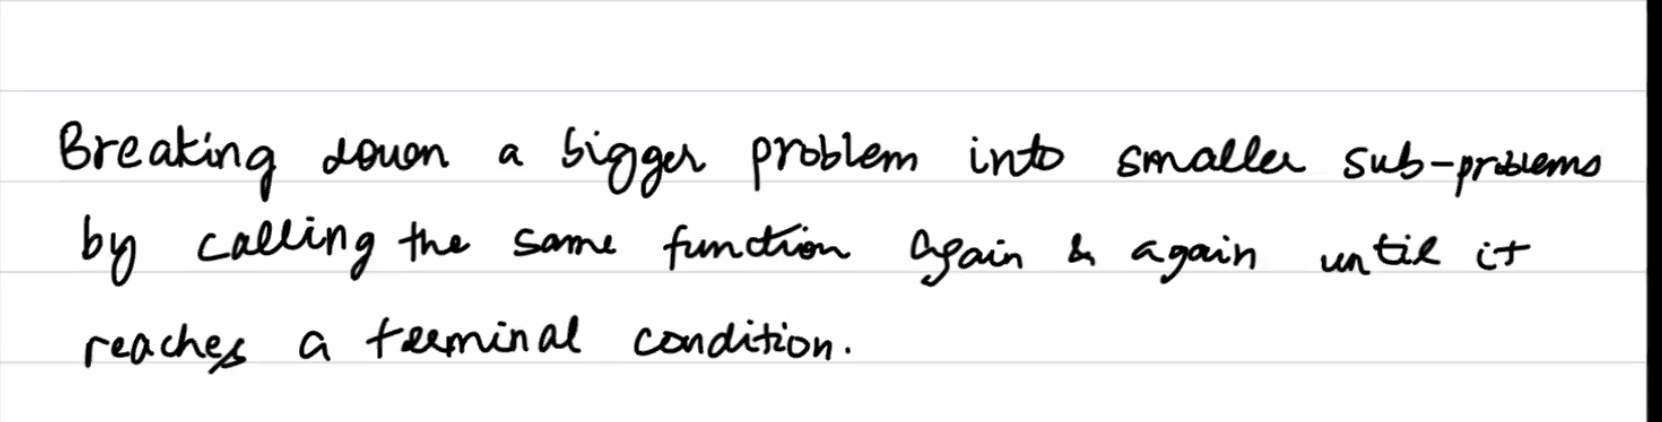 Breaking down a bigger problem into smaller sub-problems
by calling the same function again & again until it
reaches a terminal condition.